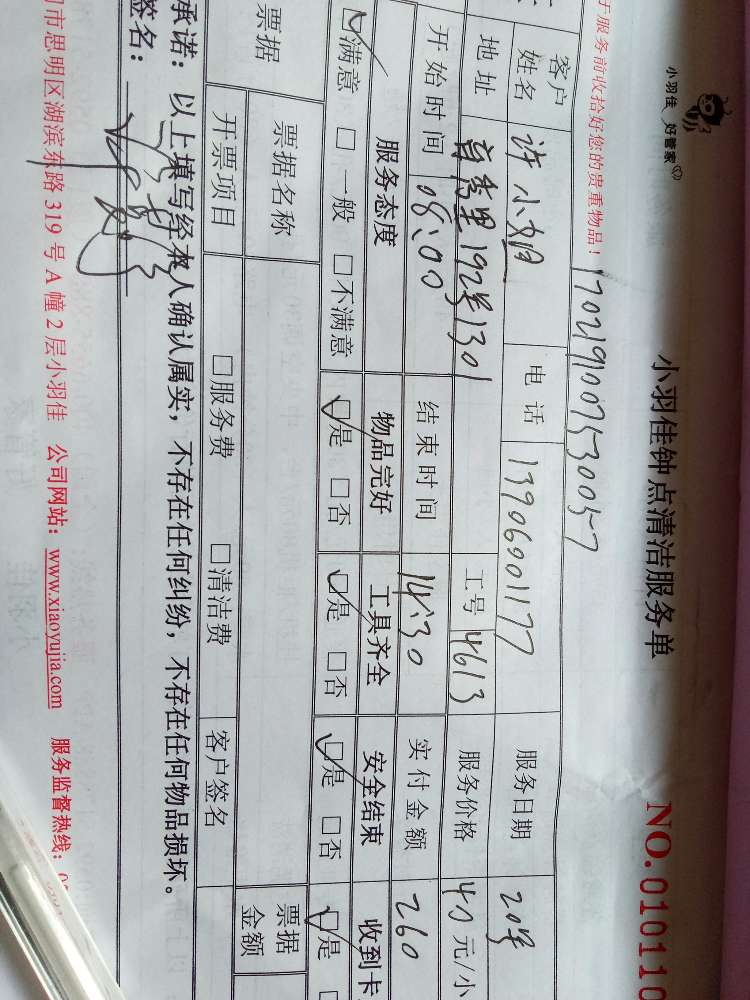 小羽佳 好管家
小羽佳钟点清洁服务单
NO.010110
于服务前收拾好您的贵重物品！
1702191007530057
客户姓名 许小姐 电话 13906001177 服务日期 20号
地址 192号1301 工号 4613 服务价格 40元/小
开始时间 08:00 结束时间 14:30 实付金额 260
服务态度 物品完好 工具齐全 安全结束 收到卡
☑满意 □一般 □不满意 ☑是 □否 ☑是 □否 ☑是 □否 ☑是
票据 票据名称 票据金额
开票项目 □服务费 □清洁费 客户签名
承诺：以上填写经本人确认属实，不存在任何纠纷，不存在任何物品损坏。
签名：
市思明区湖滨东路 319 号 A 幢 2 层小羽佳 公司网站：www.xiaoyujia.com 服务监督热线：